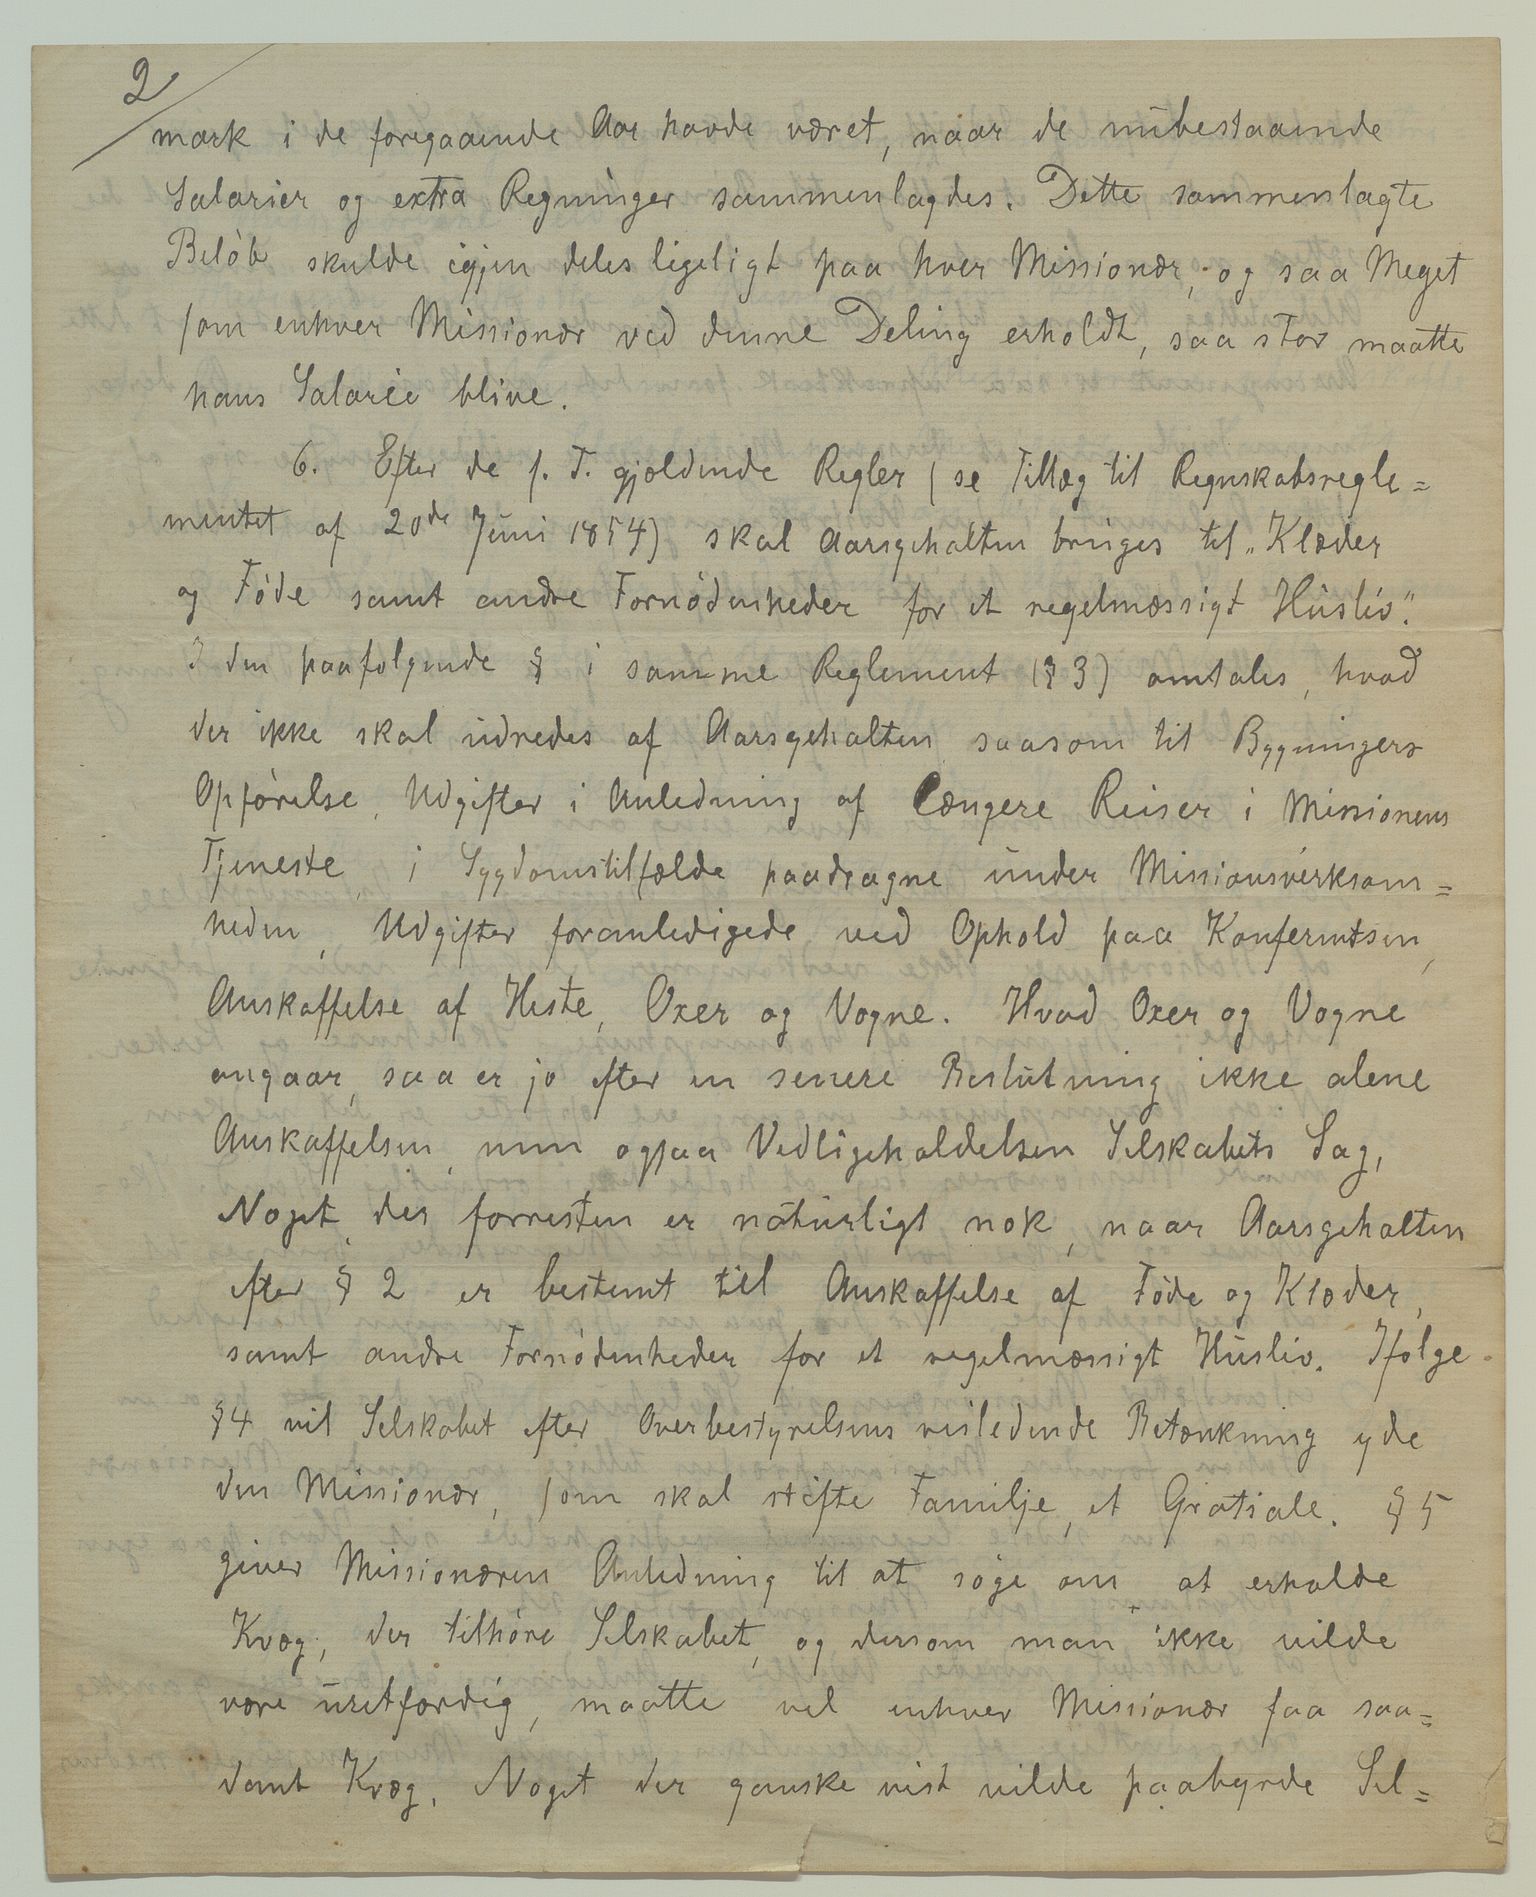 2
mark i de foregaaende Aar havde været, naar de nubestaaende
Salarier og extra Regninger sammenlagdes. Dette sammenlagte
Beløb skulde igjen deles ligeligt paa hver Missionær, og saa Meget
som enhver Missionær ved denne Deling erholdt, saa stor maatte
hans Salarie blive.
6. Efter de f. T. gjældende Regler (se Tillæg til Regnskabsregle=
mentet af 20de Juni 1854) skal Aarsgehalten bruges til "Klæder
og Føde samt andre Fornødenheder for et regelmæssigt Husliv".
I den paafølgende § i samme Reglement (§ 3) omtales, hvad
der ikke skal udredes af Aarsgehalten saasom til Bygningers
Opførelse, Udgifter i Anledning af Længere Reiser i Missionens
Tjeneste, i Sygdomstilfælde paadragne under Missionsverksom=
heden, Udgifter foranledigede ved Ophold paa Konferentsen,
Anskaffelse af Heste, Oxer og Vogne. Hvad Oxer og Vogne
angaar, saa er jo efter en senere Beslutning ikke alene
Anskaffelsen, men ogsaa Vedligeholdelsen Selskabets Sag,
Noget, der forresten er naturligt nok, naar Aarsgehalten
efter § 2 er bestemt til Anskaffelse af Føde og Klæder,
samt andre Fornødenheder for et regelmæssigt Husliv. Ifølge
§ 4 vil Selskabet efter Overbestyrelsens veiledende Betænkning yde
den Missionær, som skal stifte Familje, et Gratiale. § 5
giver Missionæren Anledning til at søge om at erholde
Kvæg, der tilhøre Selskabet, og dersom man ikke vilde
være uretfærdig, maatte vel enhver Missionær faa saa=
dant Kvæg, Noget der ganske vist vilde paabyrde Sel=